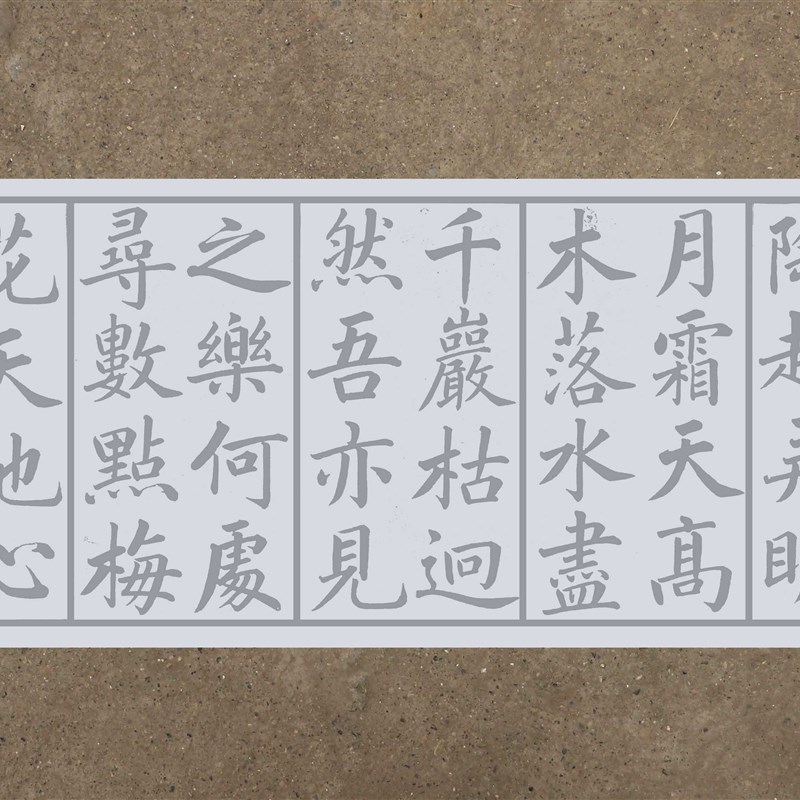 陶起弄明
月霜天髙
木落水盡
千巖枯迥
然吾亦見
之樂何處
尋數點梅
花天地心